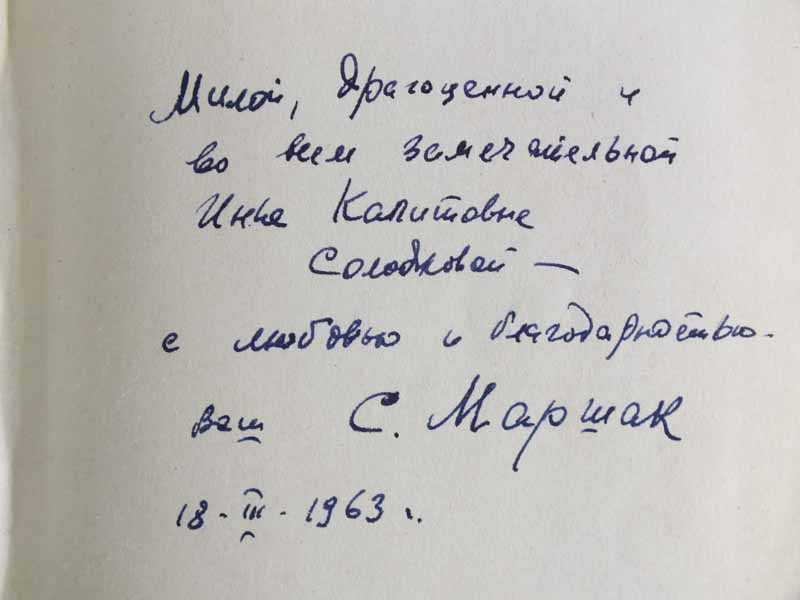 Милой, драгоценной и
во всем замечательной
Инне Капитовне
Солодковой —
с любовью и благодарностью.
Ваш С. Маршак
18 - III - 1963 г.